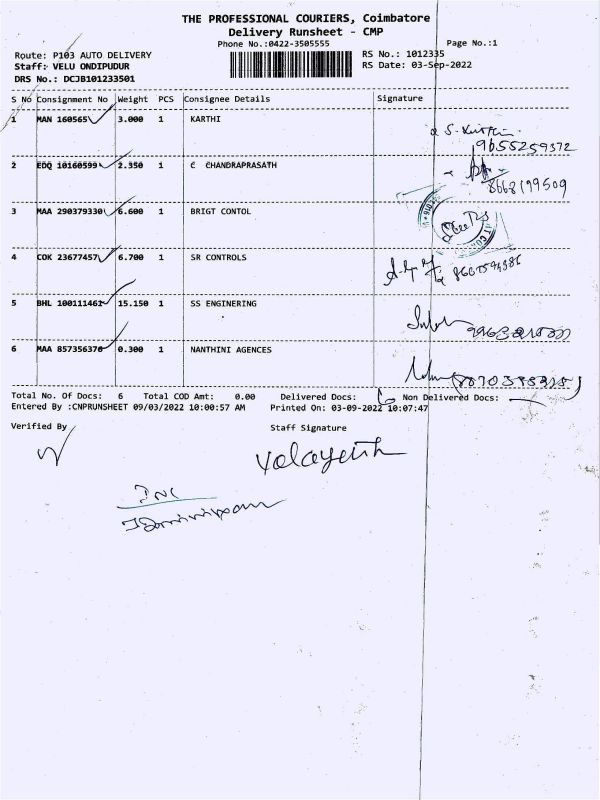 THE PROFESSIONAL COURIERS, Coimbatore
Delivery Runsheet - CMP
Phone No.:0422-3505555
Page No.:1
Route: P103 AUTO DELIVERY
RS No.: 1012335
Staff: VELU ONDIPUDUR
RS Date: 03-Sep-2022
DRS No.: DCJB101233501
S No Consignment No Weight PCS Consignee Details Signature
1 MAN 160565 3.000 1 KARTHI
9655259372
2 EDQ 10160599 2.350 1 C CHANDRAPRASATH
8668199509
3 MAA 290379330 6.600 1 BRIGT CONTOL
4 COK 23677457 6.700 1 SR CONTROLS
5 BHL 100111461 15.150 1 SS ENGINERING
6 MAA 857356376 0.300 1 NANTHINI AGENCES
Total No. Of Docs: 6 Total COD Amt: 0.00 Delivered Docs: 6 Non Delivered Docs:
Entered By :CNPRUNSHEET 09/03/2022 10:00:57 AM Printed On: 03-09-2022 10:07:47
Verified By Staff Signature